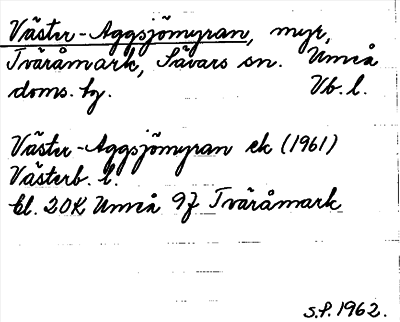 Väster-Aggsjömyran, myr,
Tväråmark, Sävars sn. Umeå
doms. hg. Vb. l.
Väster-Aggsjömyran ek (1961)
Västerb. l.
bl. 20K Umeå 9j Tväråmark
S.P. 1962.